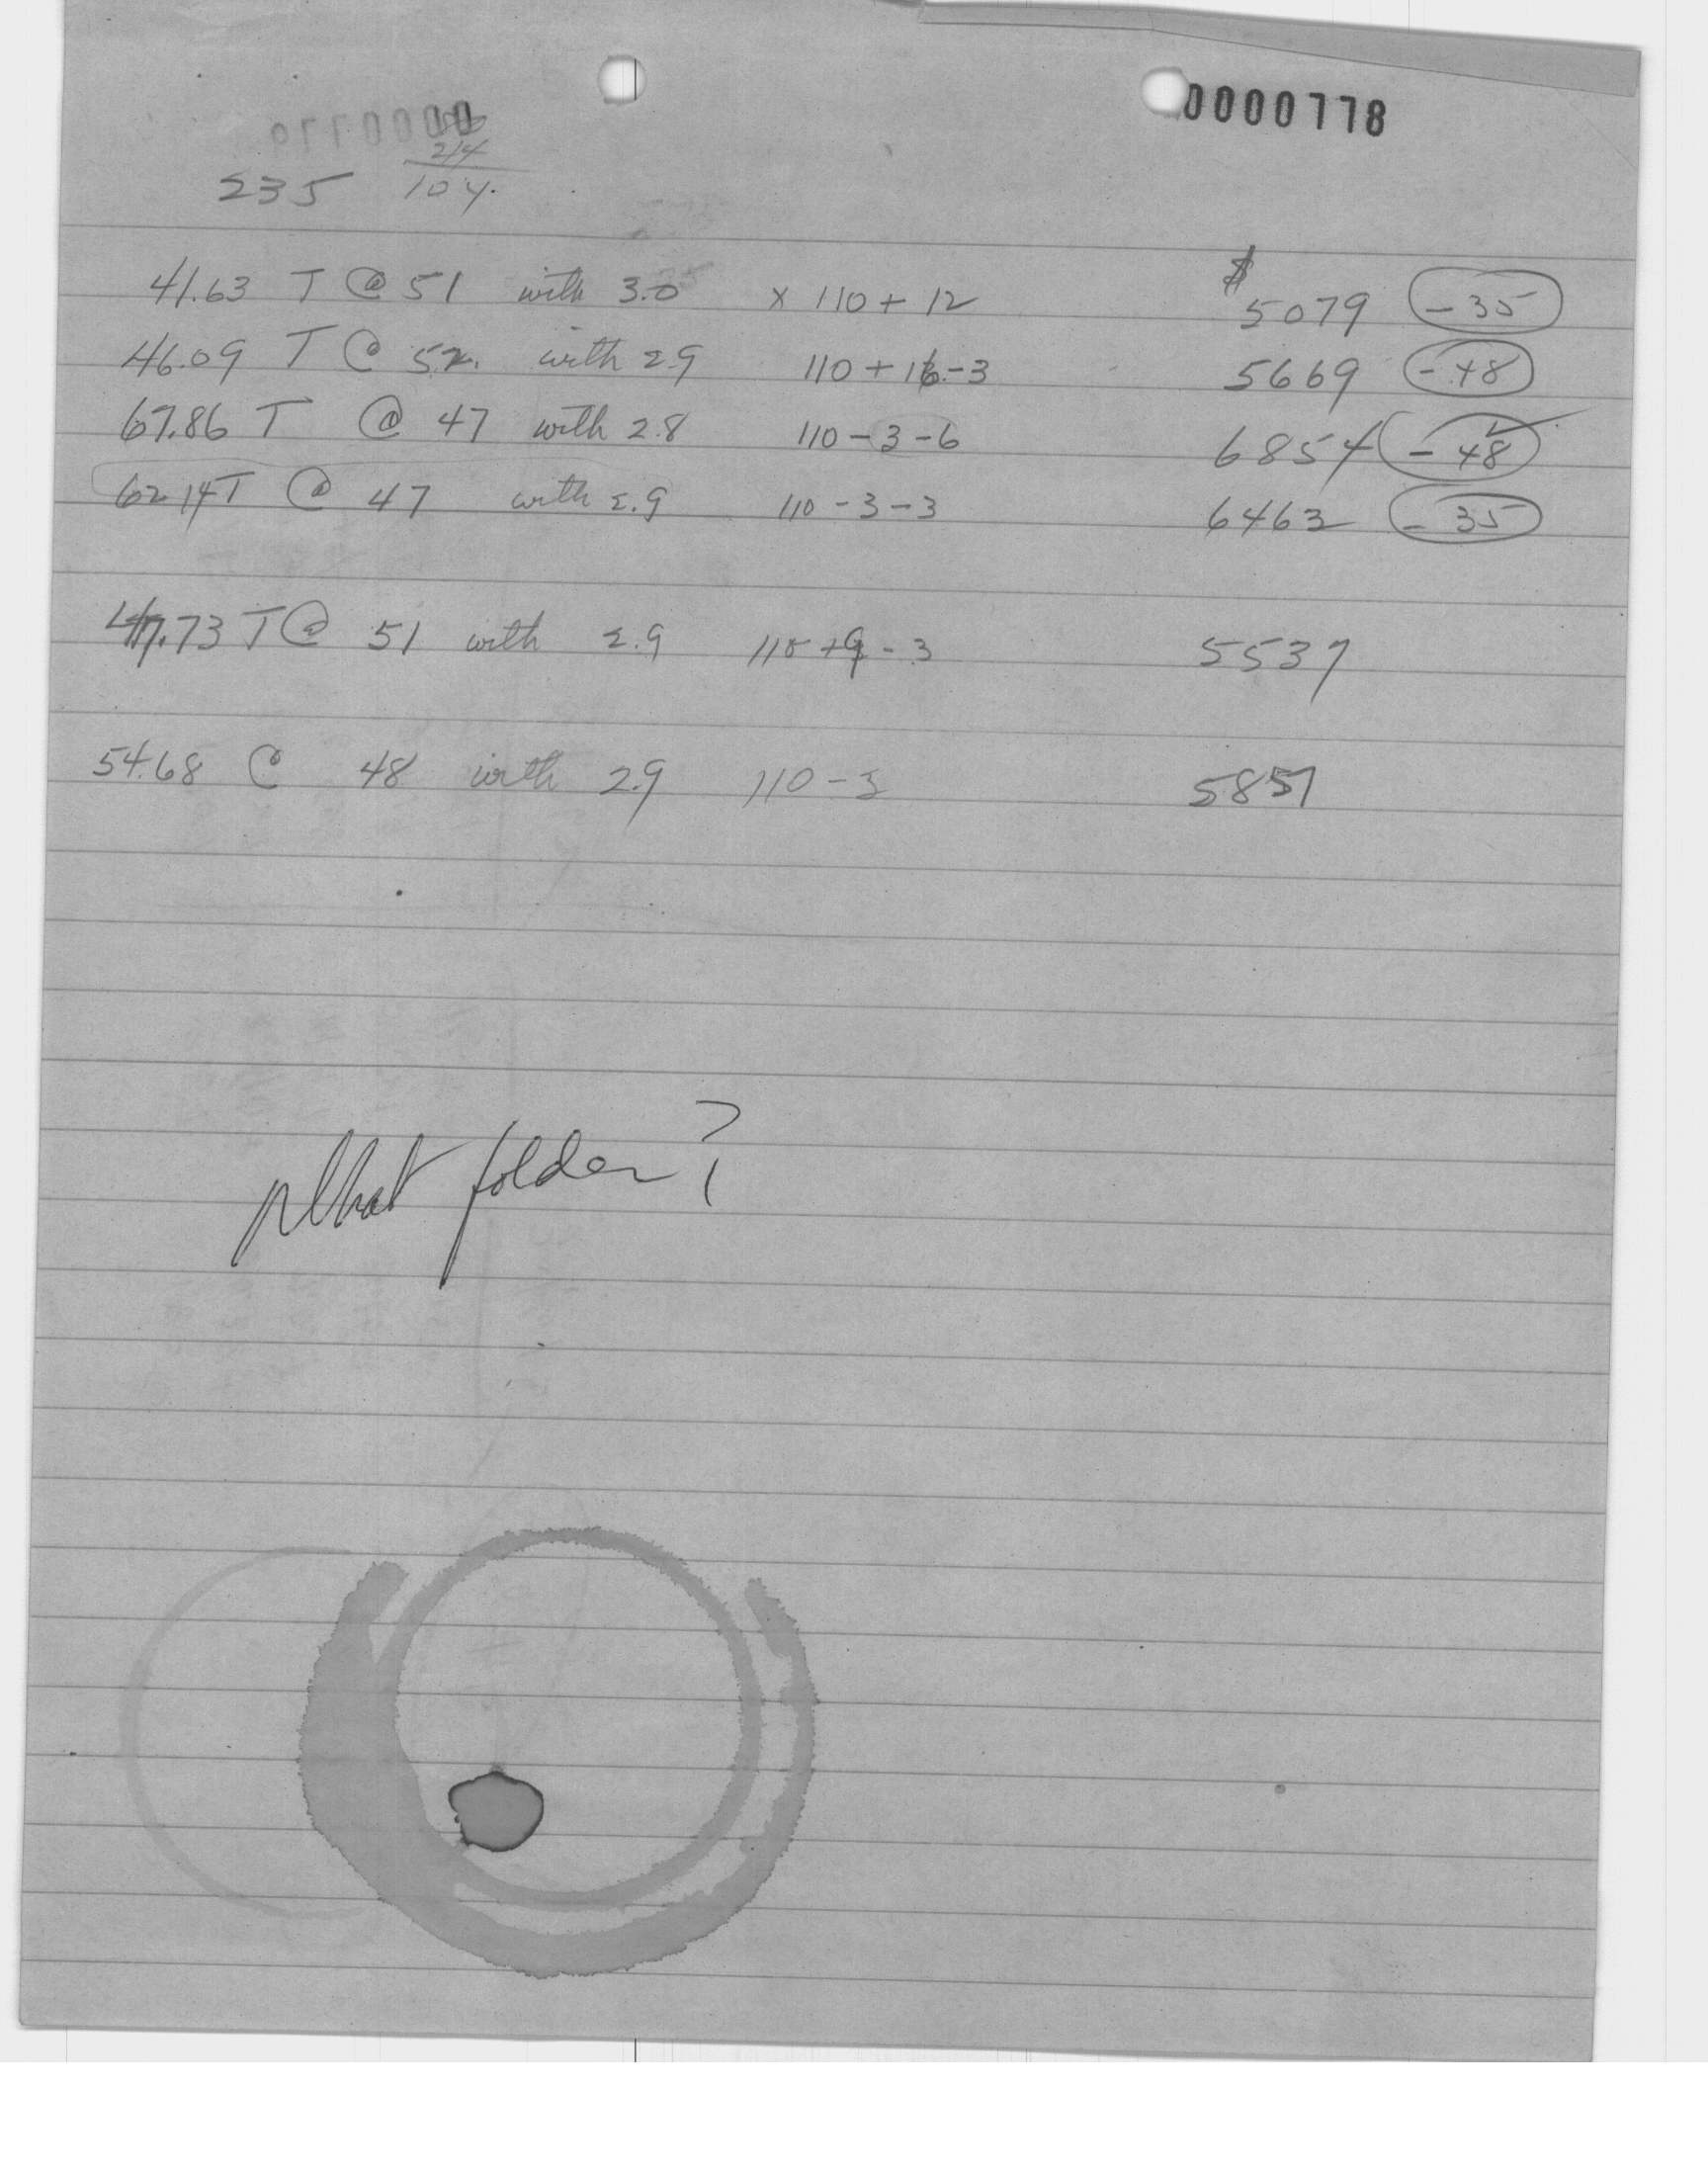 0000778
214
235 104.
41.63 T @ 51 with 3.0 x 110 + 12 $ 5079 - 35
46.09 T @ 52. with 29 110 + 16 - 3 5669 - 48
67.86 T @ 47 with 2.8 110 - 3 - 6 6854 - 48
62.14T @ 47 with 2.9 110 - 3 - 3 6463 - 35
47.73 T @ 51 with 2.9 110 + 9 - 3 5537
54.68 @ 48 with 2.9 110 - 3 5851
What folder?